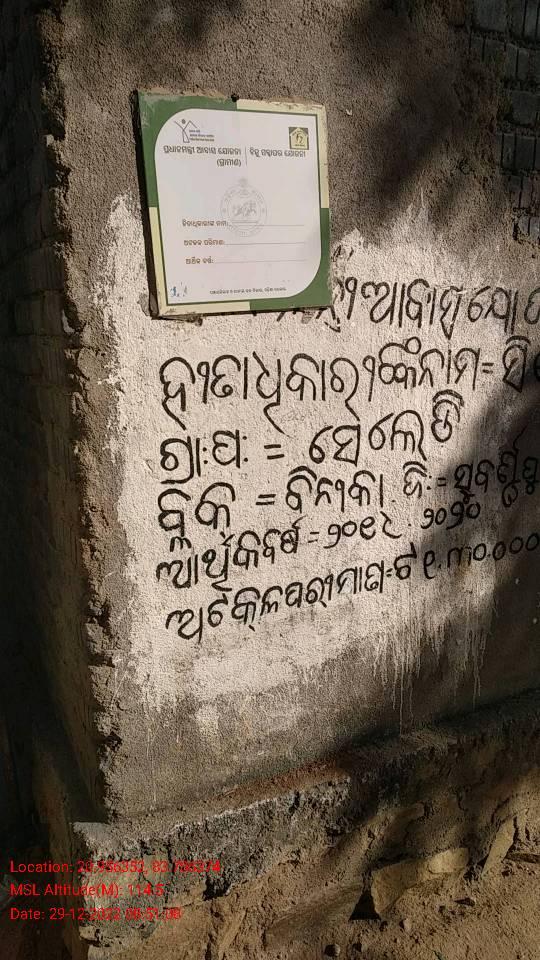 ପ୍ରଧାନମନ୍ତ୍ରୀ ଆବାସ ଯୋଜନା
(ଗ୍ରାମୀଣ)
ବିଜୁ ପକ୍କାଘର ଯୋଜନା
ହିତାଧିକାରୀଙ୍କ ନାମ:
ଅଟକଳ ପରିମାଣ:
ଆର୍ଥିକ ବର୍ଷ:
ଆବାସ ଯୋ
ହିତାଧିକାରୀଙ୍କିନାମ= ସି
ଗ୍ରା:ପ: = ସେଲେଡି
ବ୍ଲକ = ବିନିକା. ଜି:= ସୁବର୍ଣ୍ଣପୁ
ଆର୍ଥିକବର୍ଷ = ୨୦୧୯. ୨୦୨୦
ଅଟକଳପରୀମାଣ:ଟ ୧.୩୦.୦୦୦
Location: 20.956352, 83.756374
MSL Altitude(M): 114.5
Date: 29-12-2022 08:51:08